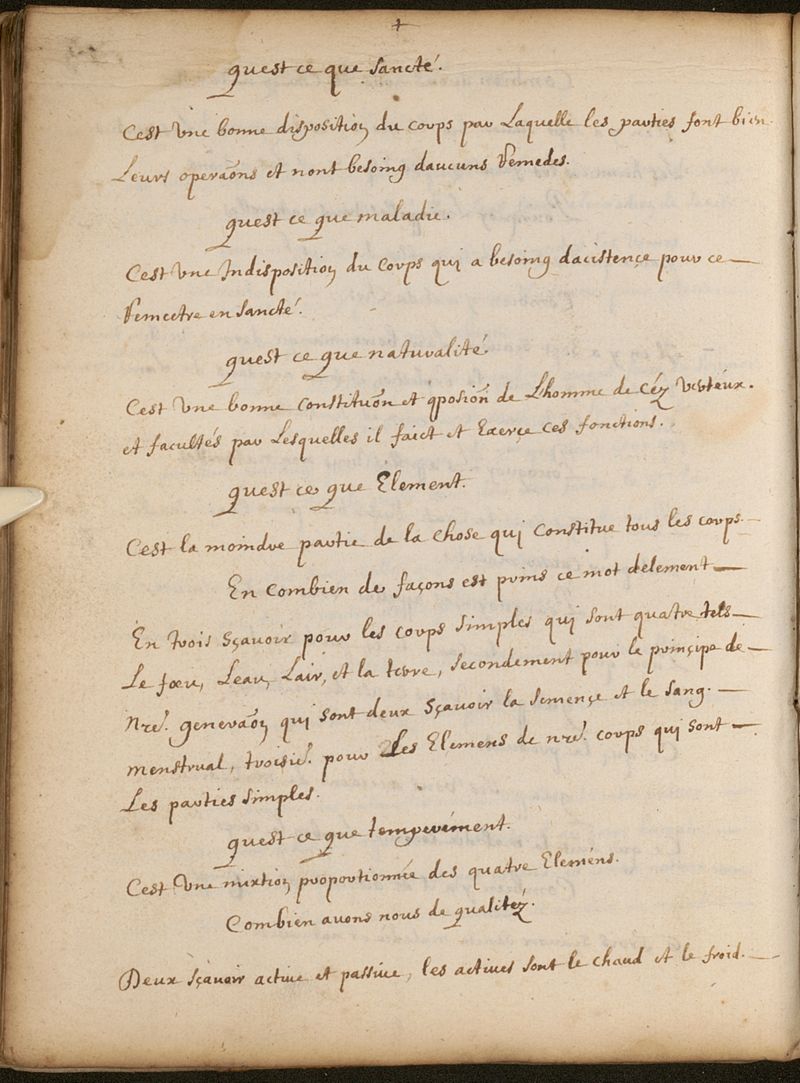 +
quest ce que sancté.
Cest une bonne disposition du corps par Laquelle les parties font bien
Leurs operaõns et nont besoing daucuns Remedes.
quest ce que maladie.
Cest une Indisposition du Corps qui a besoing dacistençe pour ce
Remectre en sancté.
quest ce que naturalité
Cest une bonne constituõn et de Lhomme de céz verteux.
et facultés par Lesquelles il faict et Exerçe ces fonctions.
quest ce que Element.
Cest la moindre partie de la chose qui Constitue tous les corps.
En combien de façons est prins ce mot delement
En trois sçavoir pour les corps simples qui sont quatre tels
Le foeu, Leau, Lair, et la terre, secondement pour le prinçipe de
nre. generaõn qui sont deux sçavoir la semençe et le sang.
menstrual, troisie. pour Les Elemens de nre. corps qui sont
Les parties simples.
quest ce que temperément.
Cest une mixtion proportionnée des quatre Eleméns.
Combien avons nous de qualitéz.
Deux sçavoir active et passive, les actives sont le chaud et le froid.